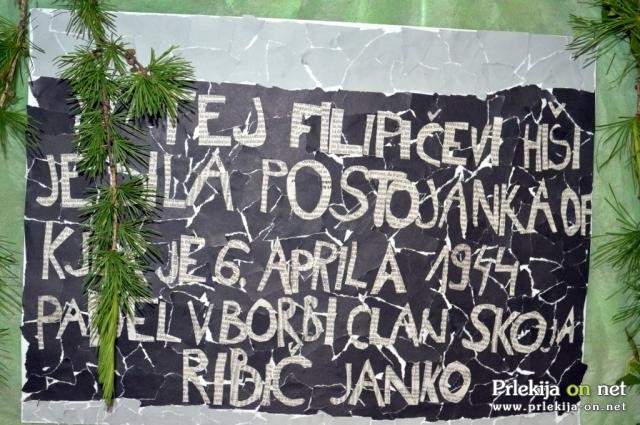 TEJ FILIPIČEVI HIŠI
JE BILA POSTOJANKA OF
KJER JE 6. APRILA 1944
PADEL V BORBI ČLAN SKOJA
RIBIČ JANKO
Prlekija on net
www.prlekija-on.net